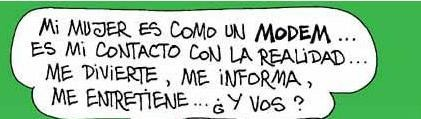 Mi MUJER ES COMO UN MODEM...
ES Mi CONTACTO CON LA REALiDAD...
ME DiViERTE, ME iNFORMA,
ME ENTRETiENE... ¿Y VOS?